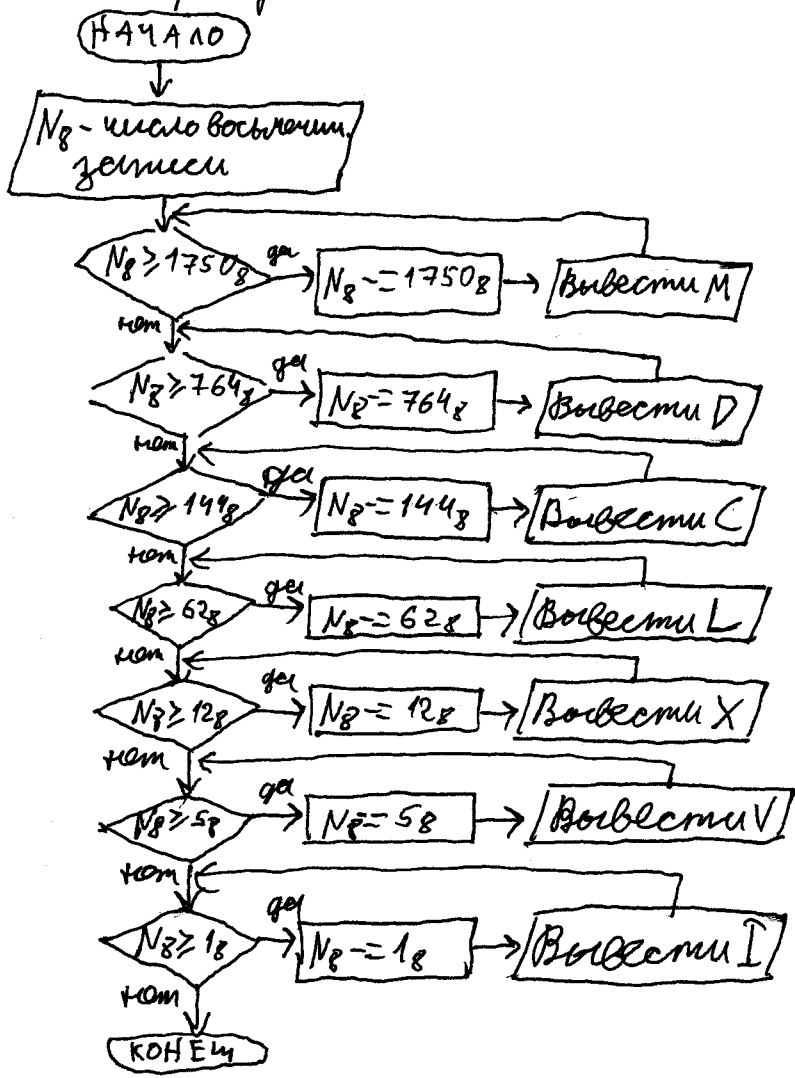 НАЧАЛО
N₈ - число восьмеричн.
записи
N₈ ≥ 1750₈
да
N₈ -= 1750₈
Вывести M
нет
N₈ ≥ 764₈
да
N₈ -= 764₈
Вывести D
нет
N₈ ≥ 144₈
да
N₈ -= 144₈
Вывести C
нет
N₈ ≥ 62₈
да
N₈ -= 62₈
Вывести L
нет
N₈ ≥ 12₈
да
N₈ -= 12₈
Вывести X
нет
N₈ ≥ 5₈
да
N₈ -= 5₈
Вывести V
нет
N₈ ≥ 1₈
да
N₈ -= 1₈
Вывести I
нет
КОНЕЦ